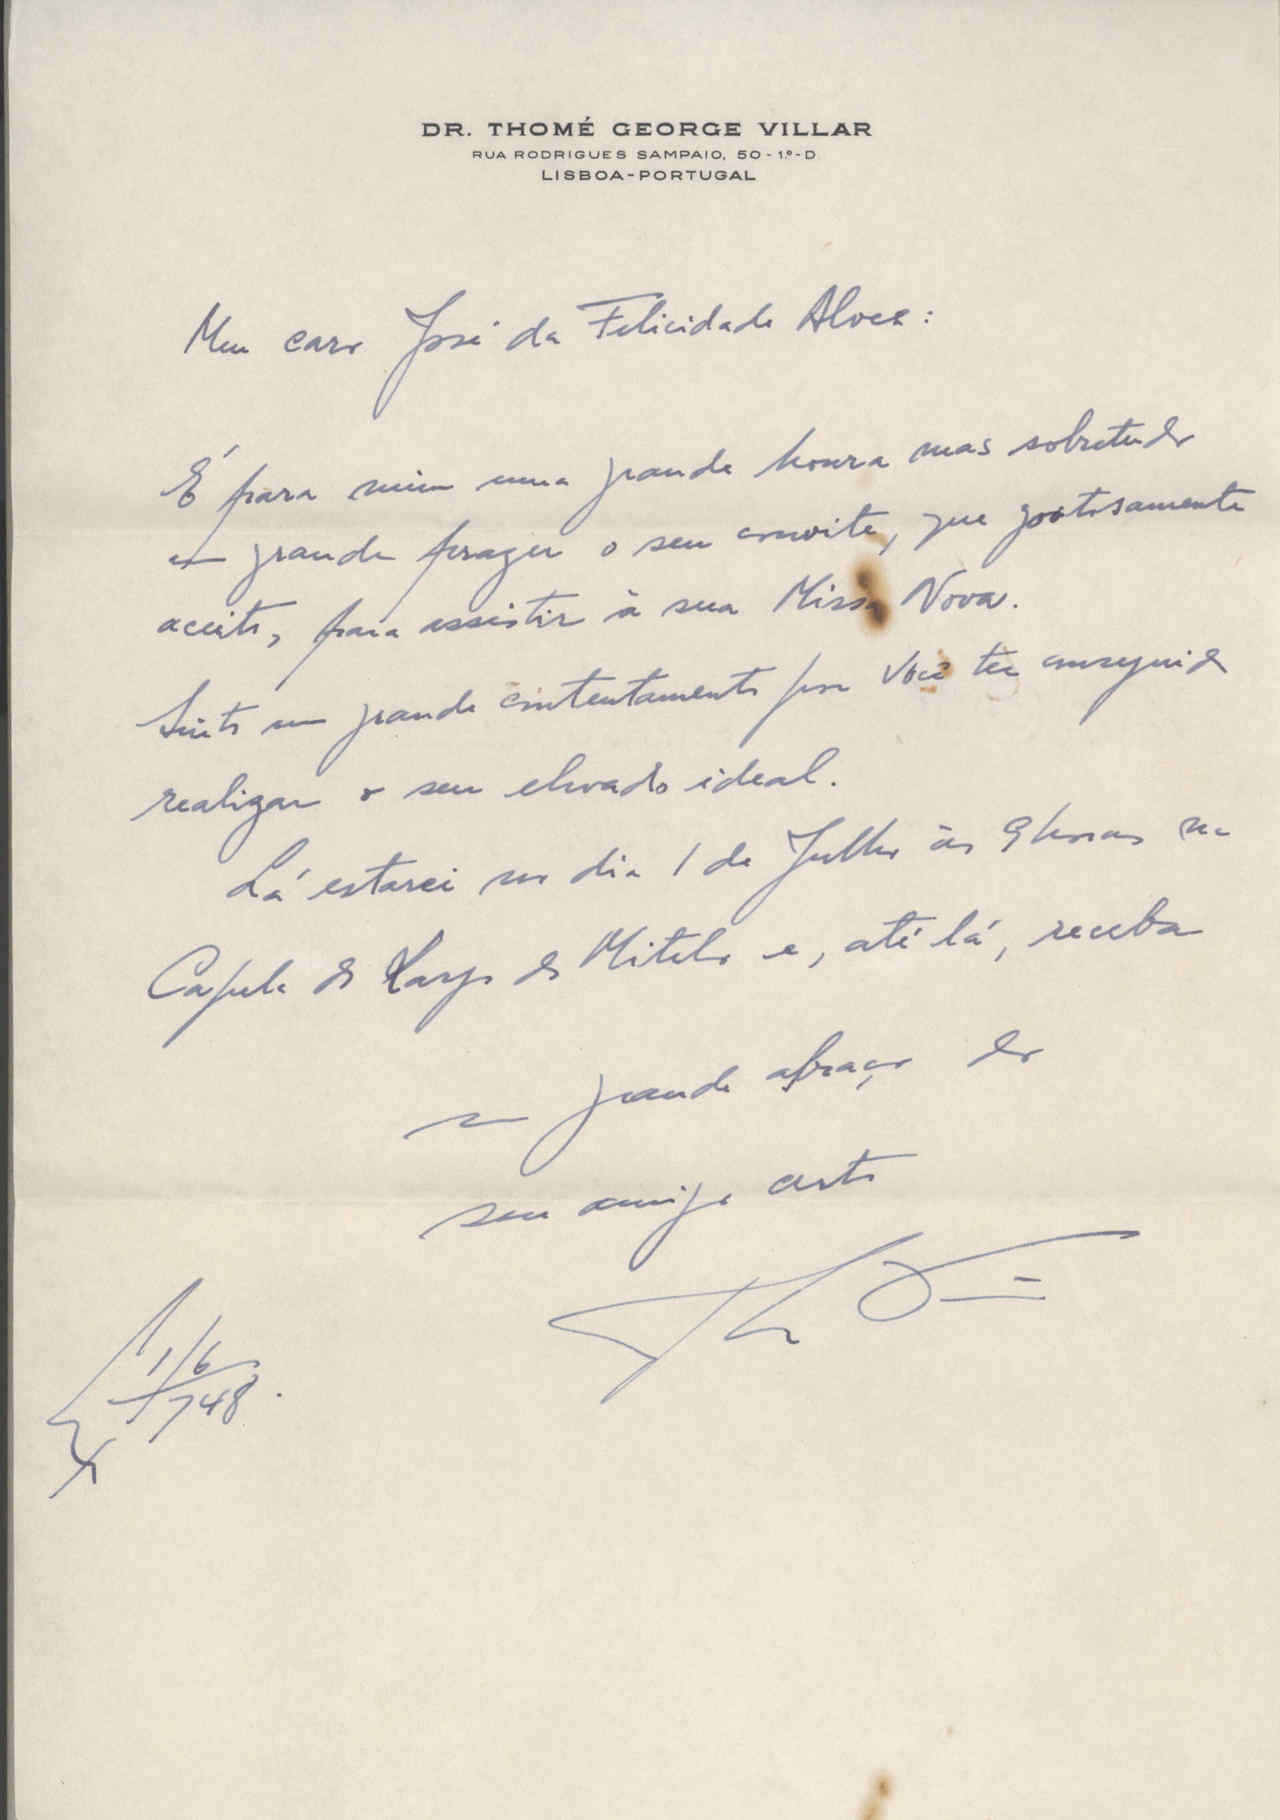 DR. THOMÉ GEORGE VILLAR
RUA RODRIGUES SAMPAIO, 50 - 1.º - D.
LISBOA - PORTUGAL
Meu caro José da Felicidade Alves:
É para mim uma grande honra mas sobretudo
um grande prazer o seu convite, que gostosamente
aceito, para assistir à sua Missa Nova.
Sinto um grande contentamento por Você ter conseguido
realizar o seu elevado ideal.
Lá estarei no dia 1 de Julho às 9 horas na
Capela do Largo do Mitelo e, até lá, receba
um grande abraço do
seu amigo certo
1/6
/948.